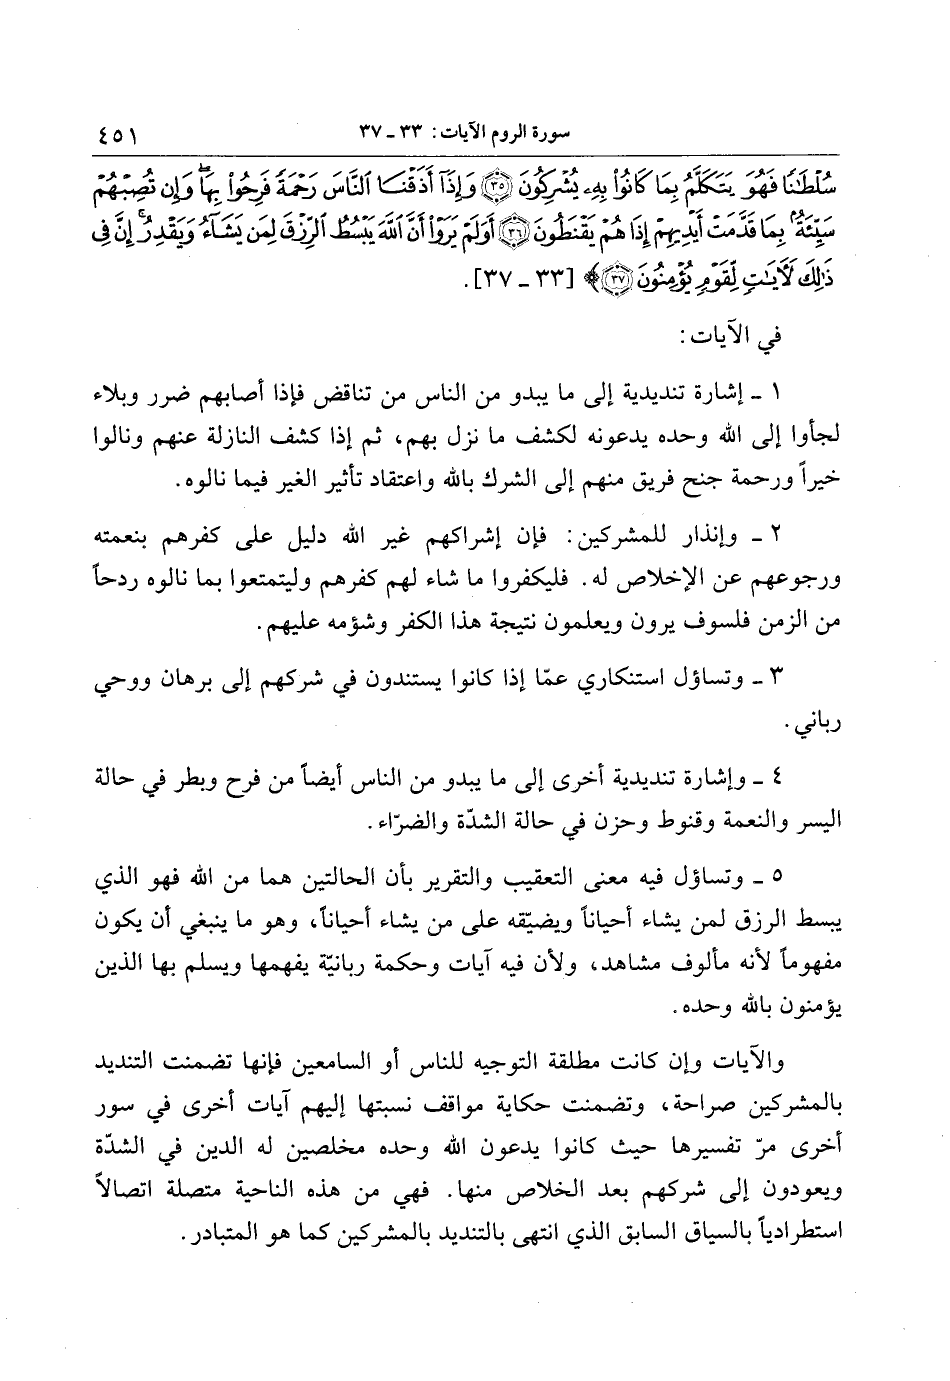 سورة الروم الآيات: ٣٣ ـ ٣٧
٤٥١
سُلْطَٰنًا فَهُوَ يَتَكَلَّمُ بِمَا كَانُوا۟ بِهِۦ يُشْرِكُونَ ۝٣٥ وَإِذَآ أَذَقْنَا ٱلنَّاسَ رَحْمَةً فَرِحُوا۟ بِهَا ۖ وَإِن تُصِبْهُمْ
سَيِّئَةٌۢ بِمَا قَدَّمَتْ أَيْدِيهِمْ إِذَا هُمْ يَقْنَطُونَ ۝٣٦ أَوَلَمْ يَرَوْا۟ أَنَّ ٱللَّهَ يَبْسُطُ ٱلرِّزْقَ لِمَن يَشَآءُ وَيَقْدِرُ ۚ إِنَّ فِى
ذَٰلِكَ لَءَايَٰتٍ لِّقَوْمٍ يُؤْمِنُونَ ۝٣٧﴾ [٣٣ ـ ٣٧].
في الآيات:
١ ـ إشارة تنديدية إلى ما يبدو من الناس من تناقض فإذا أصابهم ضرر وبلاء
لجأوا إلى الله وحده يدعونه لكشف ما نزل بهم، ثم إذا كشف النازلة عنهم ونالوا
خيراً ورحمة جنح فريق منهم إلى الشرك بالله واعتقاد تأثير الغير فيما نالوه.
٢ ـ وإنذار للمشركين: فإن إشراكهم غير الله دليل على كفرهم بنعمته
ورجوعهم عن الإخلاص له. فليكفروا ما شاء لهم كفرهم وليتمتعوا بما نالوه ردحاً
من الزمن فلسوف يرون ويعلمون نتيجة هذا الكفر وشؤمه عليهم.
٣ ـ وتساؤل استنكاري عمّا إذا كانوا يستندون في شركهم إلى برهان ووحي
رباني.
٤ ـ وإشارة تنديدية أخرى إلى ما يبدو من الناس أيضاً من فرح وبطر في حالة
اليسر والنعمة وقنوط وحزن في حالة الشدّة والضرّاء.
٥ ـ وتساؤل فيه معنى التعقيب والتقرير بأن الحالتين هما من الله فهو الذي
يبسط الرزق لمن يشاء أحياناً ويضيّقه على من يشاء أحياناً، وهو ما ينبغي أن يكون
مفهوماً لأنه مألوف مشاهد، ولأن فيه آيات وحكمة ربانيّة يفهمها ويسلم بها الذين
يؤمنون بالله وحده.
والآيات وإن كانت مطلقة التوجيه للناس أو السامعين فإنها تضمنت التنديد
بالمشركين صراحة، وتضمنت حكاية مواقف نسبتها إليهم آيات أخرى في سور
أخرى مرّ تفسيرها حيث كانوا يدعون الله وحده مخلصين له الدين في الشدّة
ويعودون إلى شركهم بعد الخلاص منها. فهي من هذه الناحية متصلة اتصالاً
استطرادياً بالسياق السابق الذي انتهى بالتنديد بالمشركين كما هو المتبادر.